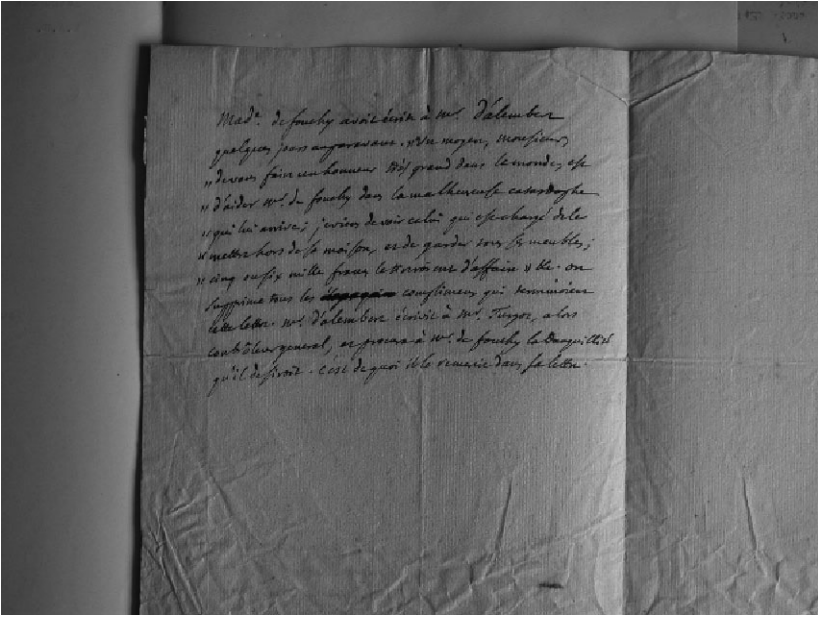 Made. de fouchy avoit écrit à mr. D'alembert
quelques jours auparavant. "Un moyen, monsieur,
" de vous faire un honneur très grand dans le monde, est
" d'aider mr. de fouchy dans la malheureuse catastrophe
" qui lui arrive; je viens de voir celui qui est chargé de le
" mettre hors de sa maison, et de garder tous ses meubles;
" cinq ou six mille francs le tireroient d'affaire " &c. on
supprime tous les complimens qui terminoient
cette lettre. mr. D'alembert écrivit à mr. Turgot, alors
contrôleur general, et procura à mr. de fouchy la tranquillité
qu'il desiroit. c'est de quoi il le remercie dans sa lettre.